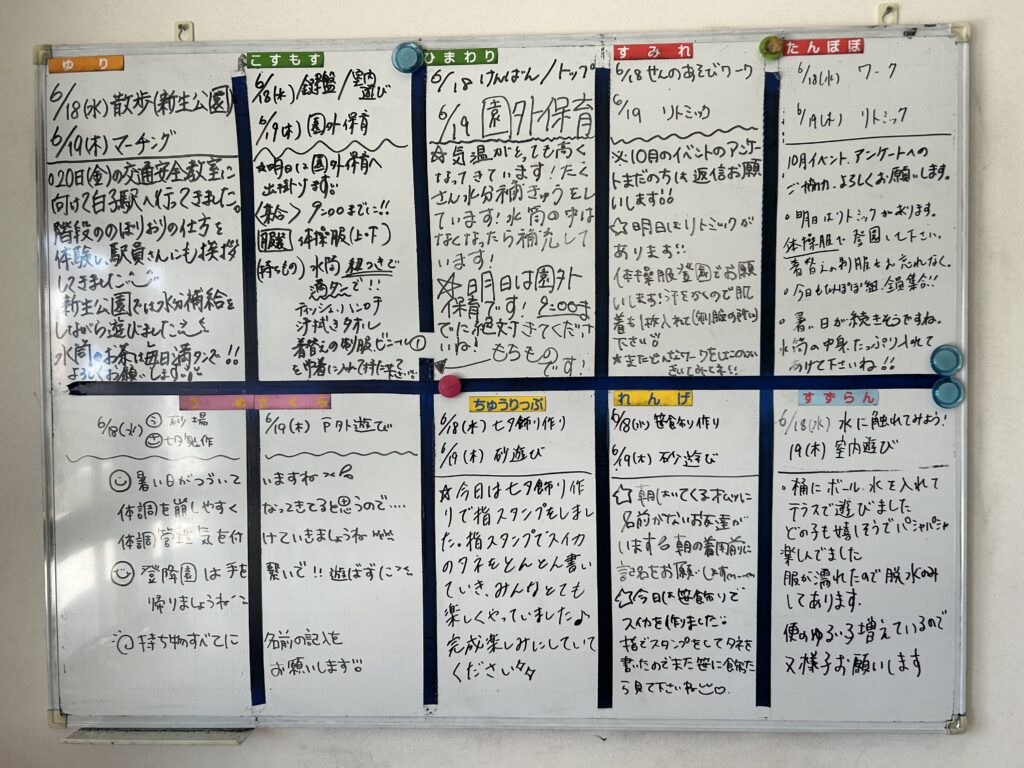 ゆり
6/18(水)散歩(新生公園)
6/19(木)マーチング
○20日(金)の交通安全教室に
向けて白子駅へ行ってきました。
階段ののぼりおりの仕方を
体験し、駅員さんにも挨拶
してきました
新生公園では水分補給を
しながら遊びました
水筒のお茶は毎日満タンで!!
よろしくお願いします
こすもす
6/18(水)/鍵盤/室内遊び
6/19(木)園外保育
☆明日は園外保育へ
出掛けます
〈集合〉9:00までに!!
服装 体操服(上・下)
(持ちもの)水筒 紐つきで
満タンで!!
ティッシュ、ハンカチ
汗拭きタオル
着替えの制服
ひまわり
6/18 けんばん/トップ
6/19 園外保育
☆気温がとっても高く
なってきています!たく
さん水分補きゅうをし
ています!水筒の中は
なくなったら補充して
います!
☆明日は園外
保育です!9:00ま
でに絶対きてくださ
いね!
もちもの
です!
すみれ
6/18 せんのあそびワーク
6/19 リトミック
※10月のイベントのアンケー
トまだの方は返信お願
いします!!
☆明日はリトミックが
あります!!
体操服登園でお願
いします!汗をかくので肌
着を1枚入れて(制服の所に)
下さい
たんぽぽ
6/18(水) ワーク
6/19(木) リトミック
10月イベント、アンケートへの
ご協力、よろしくお願いします。
・明日はリトミックがあります。
体操服で登園して下さい。
着替えの制服もお忘れなく。
・今日もたんぽぽ組、全員集合!!
・暑い日が続きそうですね。
水筒の中身、たっぷり入れて
あげて下さいね!!
うめさくら
6/18(水) 砂場
七夕製作
6/19(木) 戸外遊び
暑い日がつづいて いますね
体調を崩しやすく なってきてると思うので‥‥
体調管理気を付 けていきましょうね
登降園は手を 繋いで!!遊ばずに
帰りましょうね
持ち物すべてに 名前の記入を
お願いします
ちゅうりっぷ
6/18(水)七夕飾り作り
6/19(木)砂遊び
☆今日は七夕飾り作
りで指スタンプをしまし
た。指スタンプでスイカ
のタネをとんとん書い
ていき、みんなとても
楽しくやっていました♪
完成楽しみにしていて
ください
れんげ
6/18(水)笹飾り作り
6/19(木)砂遊び
☆朝はいてくるオムツに
名前がないお友達が
います 朝の着用前に
記名をお願いします
☆今日は笹飾りで
スイカを作りました
指でスタンプをしてタネを
書いたのでまた笹に飾った
ら見て下さいね
すずらん
6/18(水)水に触れてみよう!
19(木)室内遊び
・桶にボール、水を入れて
テラスで遊びました
どの子も嬉しそうでパシャパシャ
楽しんでました
服が濡れたので脱水のみ
してあります.
便のゆるい子増えているので
又様子お願いします